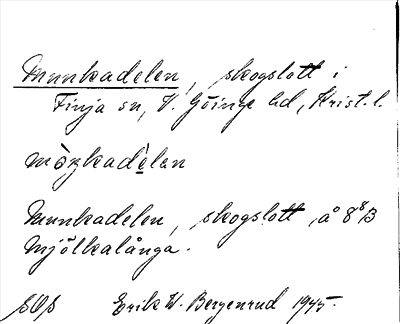 Munkadelen, skogslott i
Finja sn, V. Göinge hd, Krist. l.
mòŋkadèlan
Munkadelen, skogslott, å 8⁸B
Mjölkalånga.
Erik W. Bergenrud 1945.